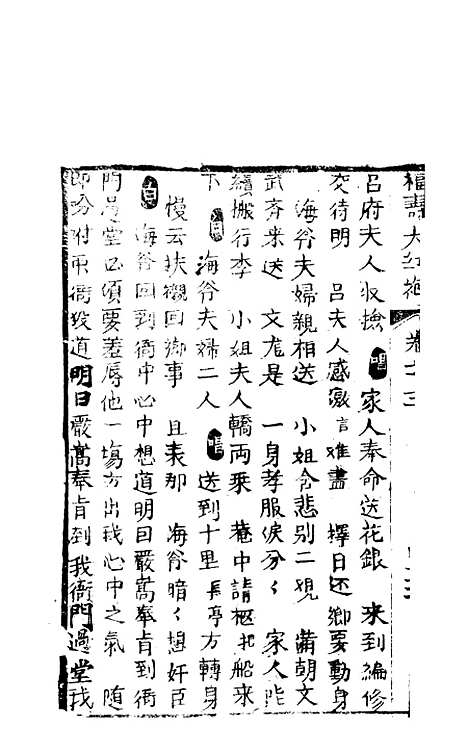 福壽大紅袍 卷十三
呂府夫人收搶 唱 家人奉命送花銀 來到編修
交待明 呂夫人感激言难盡 擇日还鄉要動身
海爷夫婦親相送 小姐含悲别二親 滿朝文
武齐来送 文龙是 一身孝服淚分〻 家人啀
續搬行李 小姐夫人轎両乘 菴中請柩扎船来
下 白 海爷夫婦二人 唱 送到十里長亭方轉身
慢云扶櫬回鄉事 且表那 海爷暗〻想奸臣
白 海爷回到衙中心中想道明日嚴嵩奉旨到衙
門过堂必須要羞辱他一塲方出我心中之氣 随
即吩咐巾衙役道明日嚴嵩奉旨到我衙門過堂我